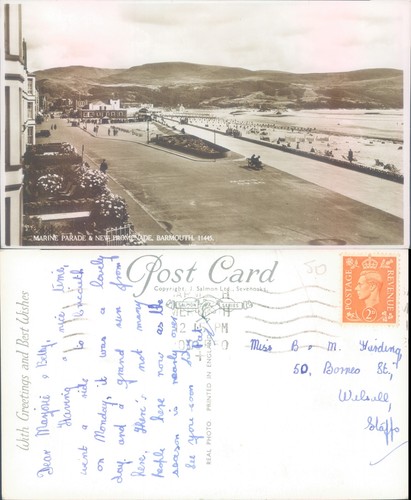 MARINE PARADE & NEW PROMENADE, BARMOUTH. 11445.
Post Card
Copyright. J. Salmon Ltd., Sevenoaks.
With Greetings and Best Wishes
Dear Marjorie & Betty,
"Having a nice time,
went a ride to
on Monday, it was a lovely
day, and a grand run from
here. There's not many
people here now as the
season is nearly over.
See you soon
REAL PHOTO PRINTED IN ENGLAND
POSTAGE
REVENUE
2D
50
Miss B & M. Harding,
50, Borneo St,
Walsall,
Staffs